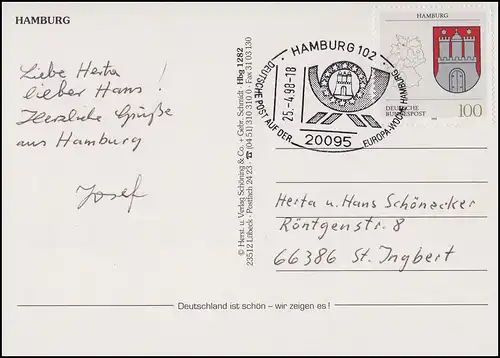 HAMBURG
Liebe Herta
lieber Hans!
Herzliche Grüße
aus Hamburg
Josef
© Herst. u. Verlag Schöning & Co. + Gebr. Schmidt Hbg 1282
23512 Lübeck · Postfach 24 23 · ☎ (04 51) 310 310 · Fax 31 03 130
HAMBURG 102
DEUTSCHE POST AUF DER
EUROPA-HOCH HAMBURG
25.-4.98-18
20095
HAMBURG
DEUTSCHE
BUNDESPOST
100
Herta u. Hans Schönecker
Röntgenstr. 8
66386 St. Ingbert
Deutschland ist schön – wir zeigen es!